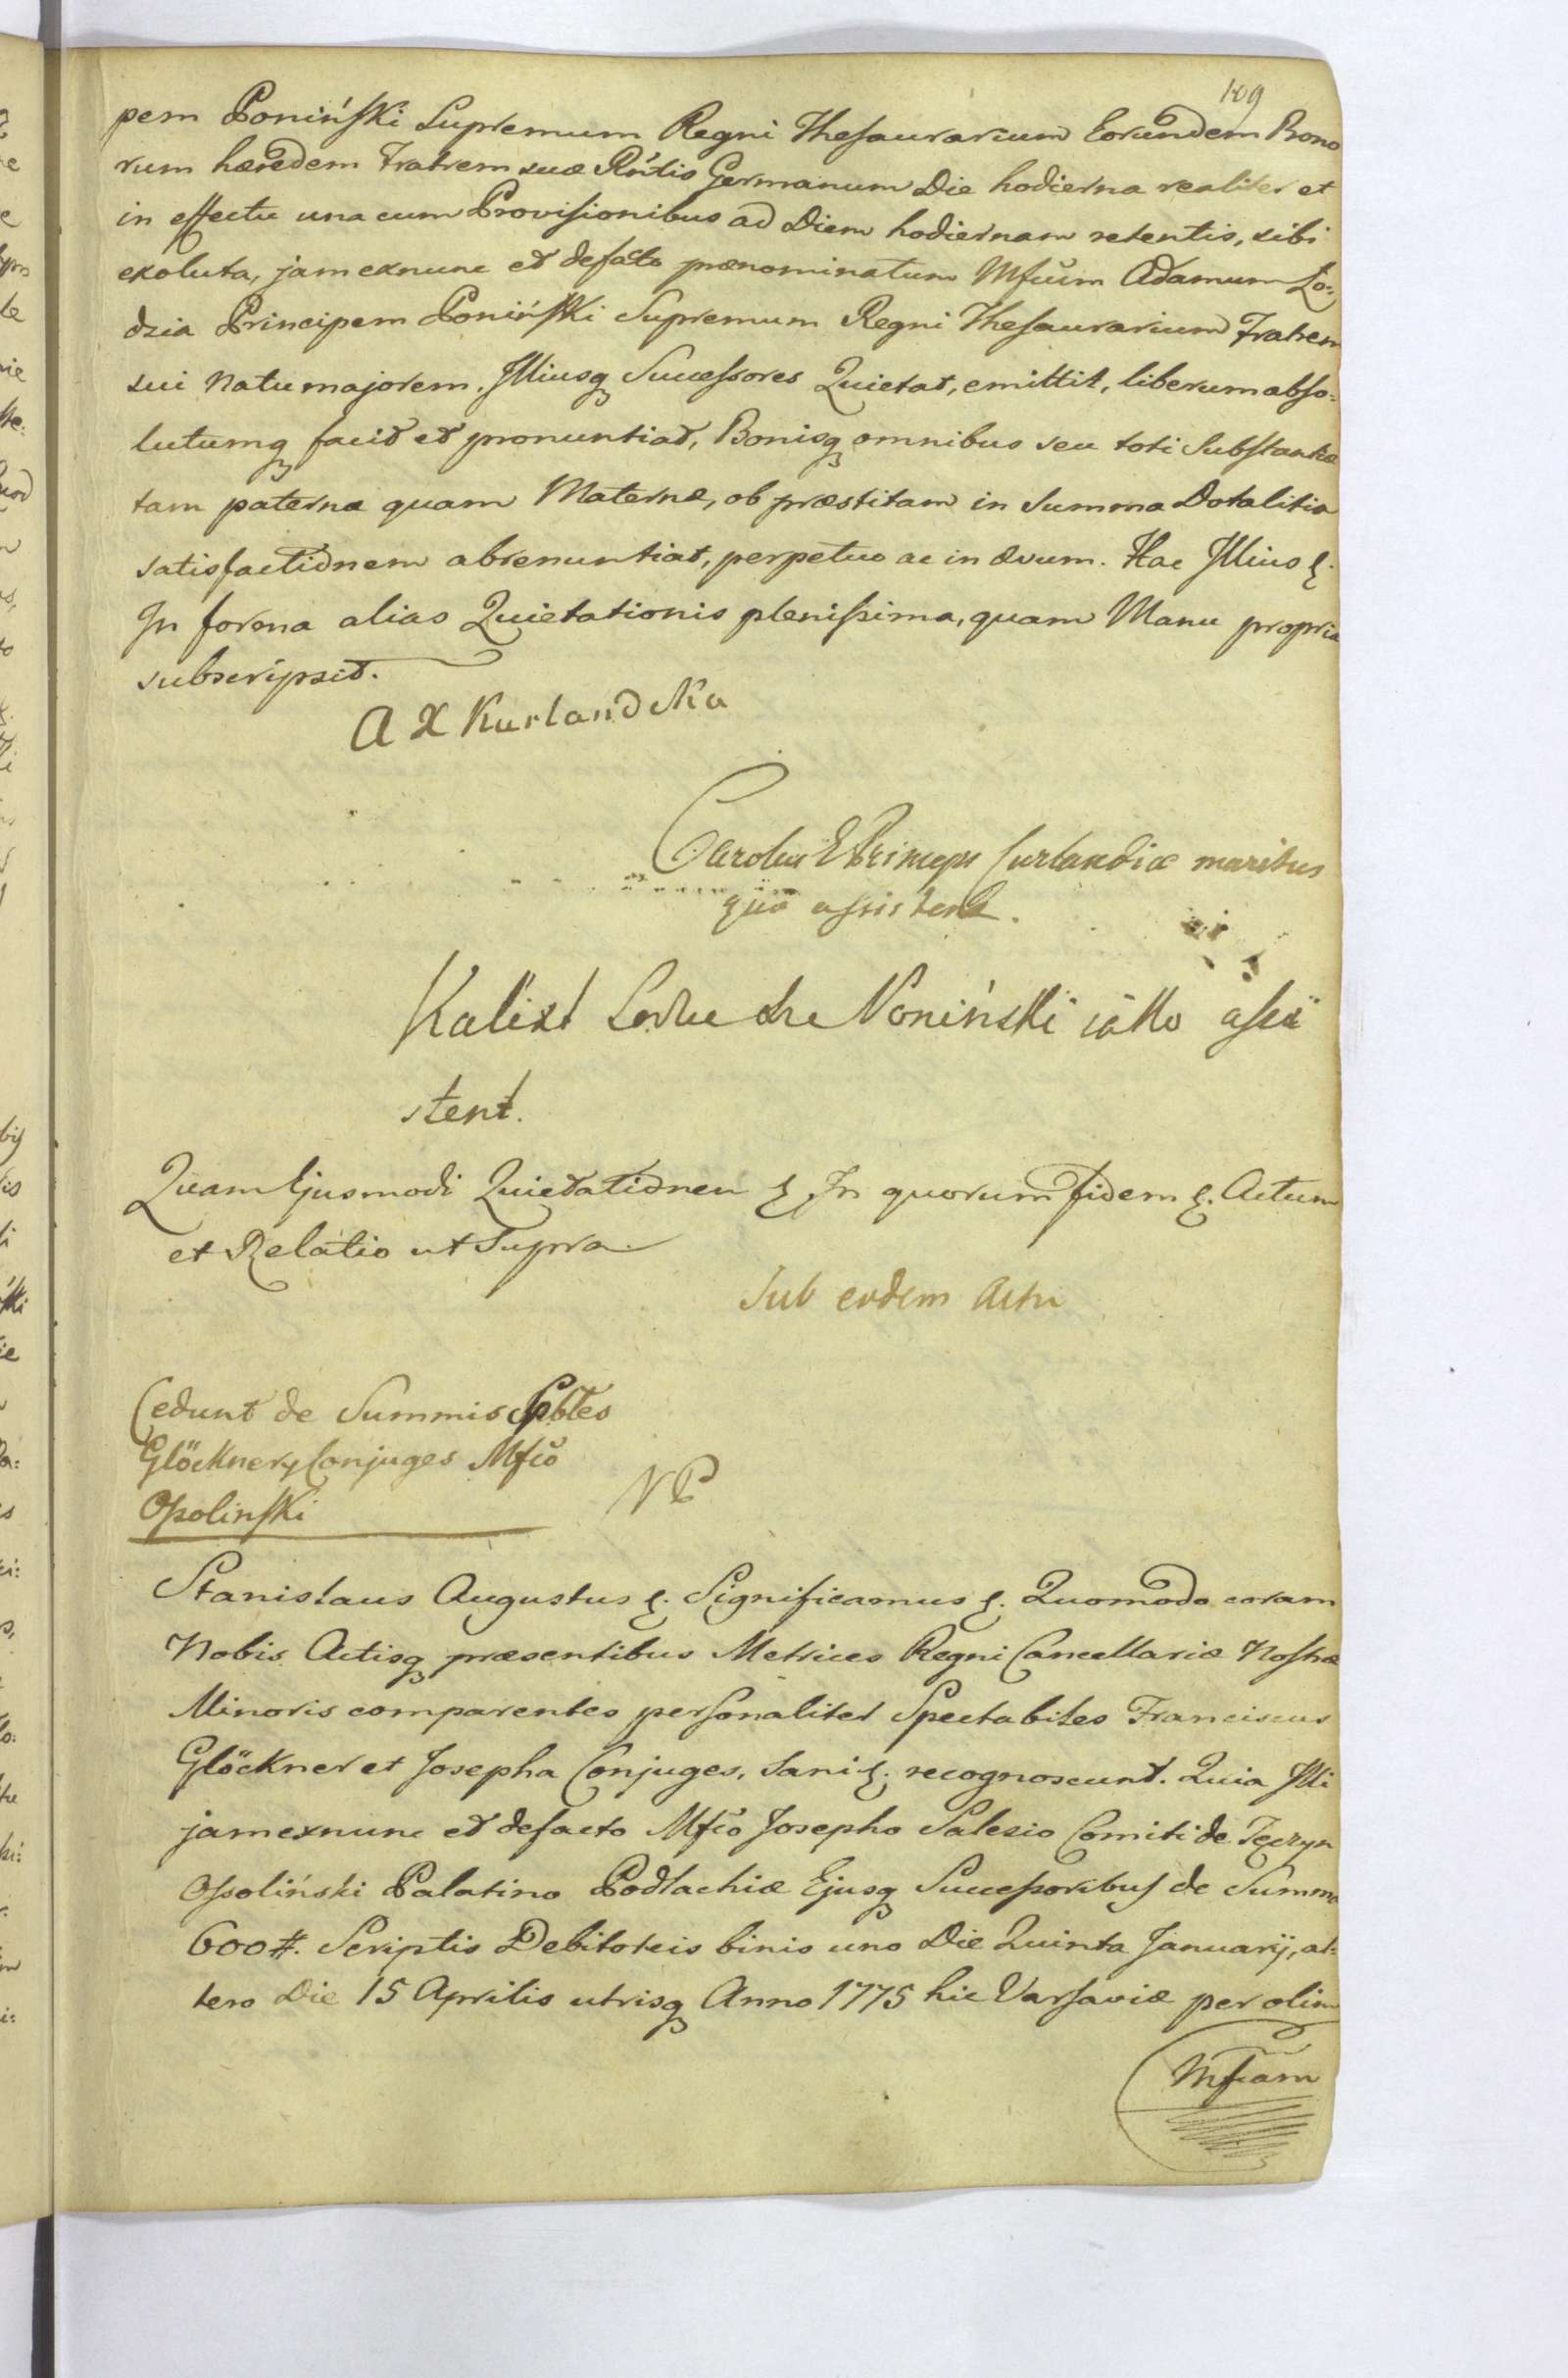 109
pem Poniński Supremum Regni Thesaurarium Eorundem Bono
rum hæredem Fratrem suæ Rńtis Germanum Die hodierna realiter et
in effectu una cum Provisionibus ad Diem hodiernam retentis, sibi
exoluta, jam exnunc et defacto prænominatum Mfcum Adamum Lo:
dzia Principem Poniński Supremum Regni Thesaurarium Fratrem
sui natu majorem. Illiusq Successores Quietat, emittit, liberum abso:
lutumq facit et pronuntiat, Bonisq omnibus seu toti Substantiæ
tam paternæ quam Maternæ, ob præstitam in Summa Dotalitia
satisfactionem abrenuntiat, perpetuo ac in ævum. Hac Illius &.
In forma alias Quietationis plenissima, quam Manu propria
subscripsit.
A X Kurlandska
Carolus Princeps Curlandiæ maritus
qua assistens.
Kalixt Poniński iako assi
stent.
Quam Ejusmodi Quietationem & In quorum fidem &. Actum
et Relatio ut Supra.
Sub eodem Actu
Cedunt de Summis Spbles
Glöckner Conjuges Mfco
Ossolinski
NP
Stanislaus Augustus &. Significamus &. Quomodo coram
Nobis Actisq præsentibus Metrices Regni Cancellariæ Nostræ
Minoris comparentes personaliter Spectabiles Franciscus
Glöckner et Josepha Conjuges, Sani &. recognoscunt. Quia Illi
jam exnunc et defacto Mfco Josepho Salesio Comiti de Tęczyn
Ossoliński Palatino Podlachiæ Ejusq Successoribus de Summa
600 #. Scriptis Debitoreis binis uno Die Quinta Januarij, al:
tero Die 15 Aprilis utrisq Anno 1775 hic Varsaviæ per olim
Mfcam